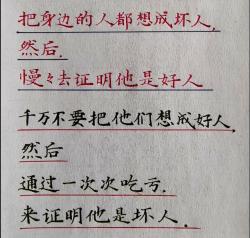 把身边的人都想成坏人,
然后.
慢々去证明他是好人
千万不要把他们想成好人,
然后
通过一次次吃亏.
来证明他是坏人.